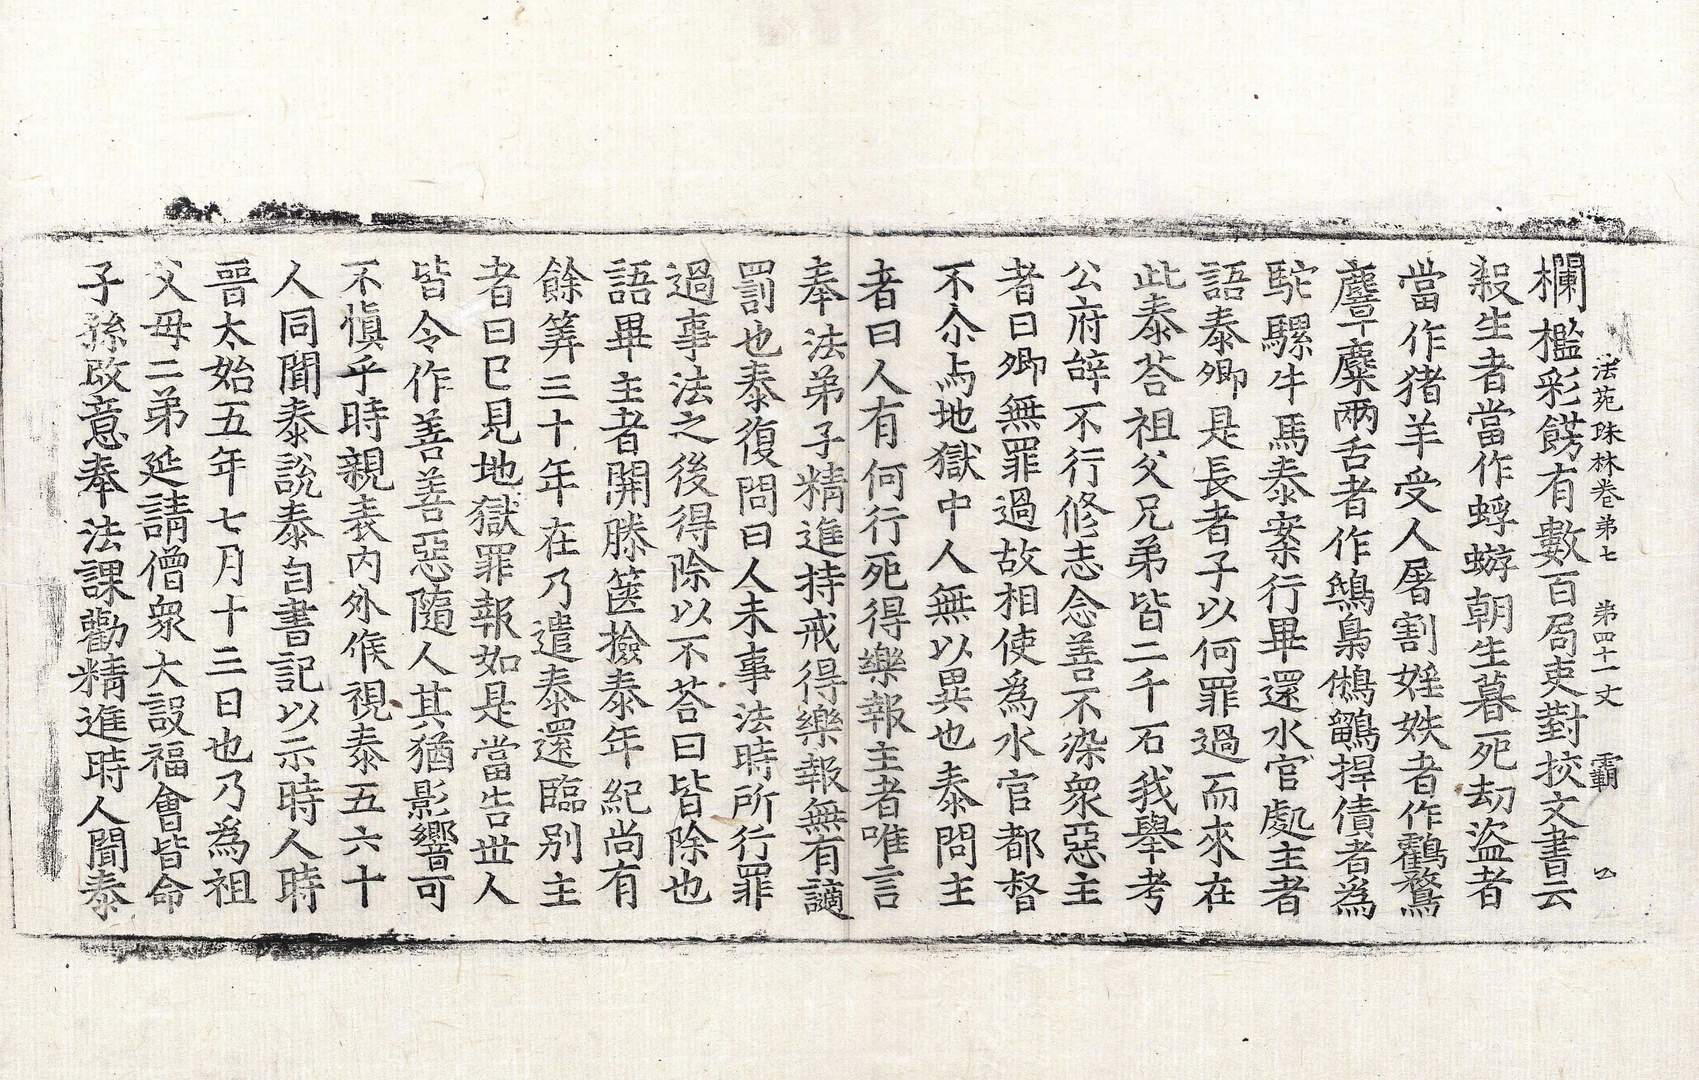 法苑珠林卷弟七 第四十一丈 覇
欄檻彩餝有數百局吏對挍文書云
殺生者當作蜉蝣朝生暮死劫盜者
當作猪羊受人屠割婬妷者作鸖鶩
麞麋兩舌者作鴟梟鵂鶹捍債者為
駝騾牛馬泰案行畢還水官處主者
語泰卿是長者子以何罪過而來在
此泰荅祖父兄弟皆二千石我舉考
公府辝不行修志念善不染衆惡主
者曰卿無罪過故相使為水官都督
不尒与地獄中人無以異也泰問主
者曰人有何行死得樂報主者唯言
奉法弟子精進持戒得樂報無有讁
罰也泰復問曰人未事法時所行罪
過事法之後得除以不荅曰皆除也
語畢主者開縢篋撿泰年紀尚有
餘筭三十年在乃遣泰還臨别主
者曰已見地獄罪報如是當告世人
皆令作善善惡隨人其猶影響可
不慎乎時親表内外候視泰五六十
人同聞泰說泰自書記以示時人時
晉太始五年七月十三日也乃為祖
父母二弟延請僧衆大設福會皆命
子孫改意奉法課勸精進時人聞泰